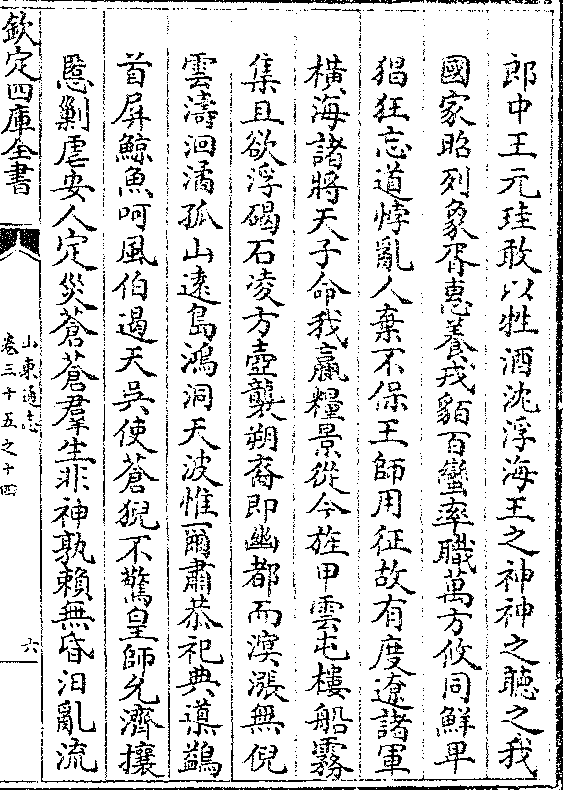 郎中王元珪敢以牲酒沈浮海王之神神之聽之我
國家昭列象胥惠養戎貊百蠻率職萬方攸同鮮卑
猖狂忘道悖亂人棄不保王師用征故有度遼諸軍
横海諸將天子命我羸糧景從今旌甲雲屯樓船霧
集且欲浮碣石凌方壺襲朔裔即幽都而溟漲無倪
雲濤洄潏孤山遠島鴻洞天波惟爾肅恭祀典導鷁
首屏鯨魚呵風伯遏天吳使蒼猊不驚皇師允濟攘
慝剿虐安人定災蒼蒼羣生非神孰賴無昏汨亂流
欽定四庫全書
山東通志
卷三十五之十四
六